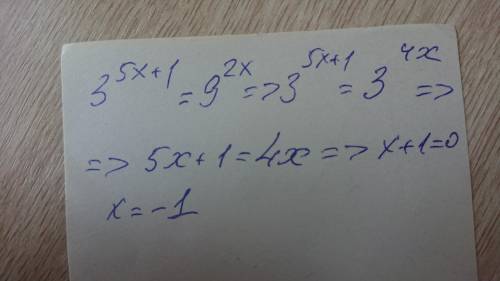 3^{5x+1} = 9^{2x} => 3^{5x+1} = 3^{4x} =>
=> 5x+1=4x => x+1=0
x=-1